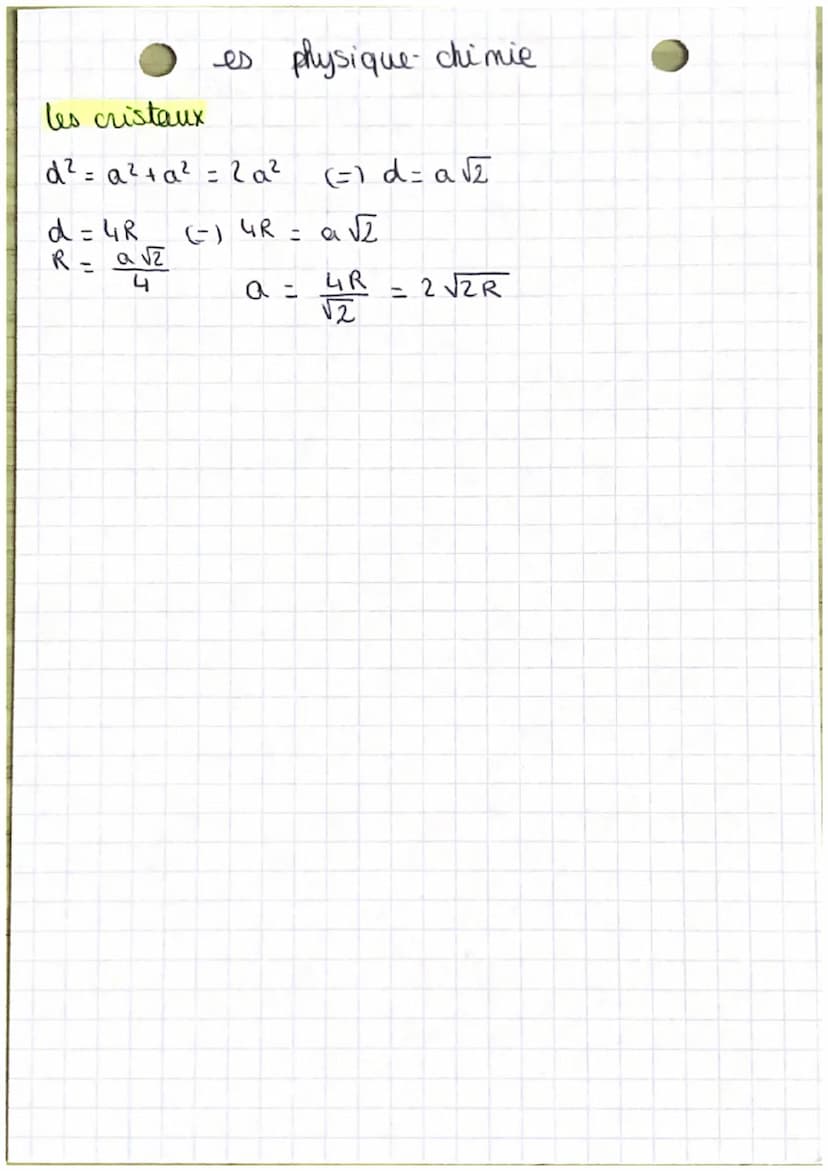 es physique-chimie
les cristaux
d² = a² + a² = 2a² (=) d = a√2
d = 4R (=) 4R = a√2
R = a√2/4
a = 4R/√2 = 2√2R